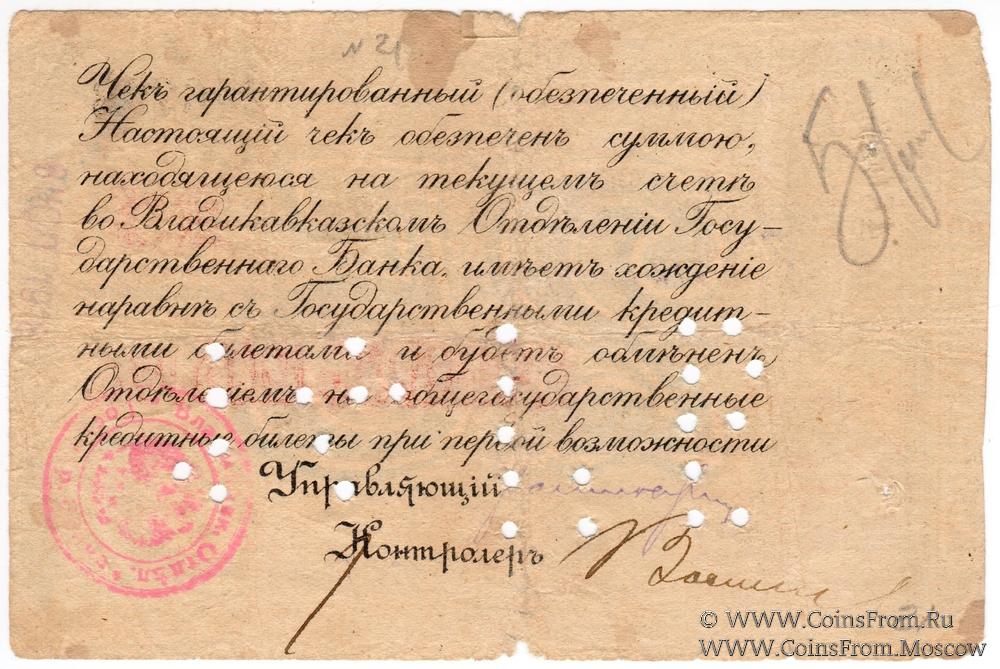 N 21
Чекъ гарантированный (обезпеченный)
Настоящій чекъ обезпеченъ суммою,
находящеюся на текущемъ счетѣ
во Владикавказскомъ Отдѣленіи Госу-
дарственнаго Банка, имѣетъ хожденіе
наравнѣ съ Государственными кредит-
ными билетами и будетъ обмѣненъ
Отдѣленіемъ на общегосударственные
кредитные билеты при первой возможности
Управляющій
Контролеръ
© WWW.CoinsFrom.Ru
WWW.CoinsFrom.Moscow